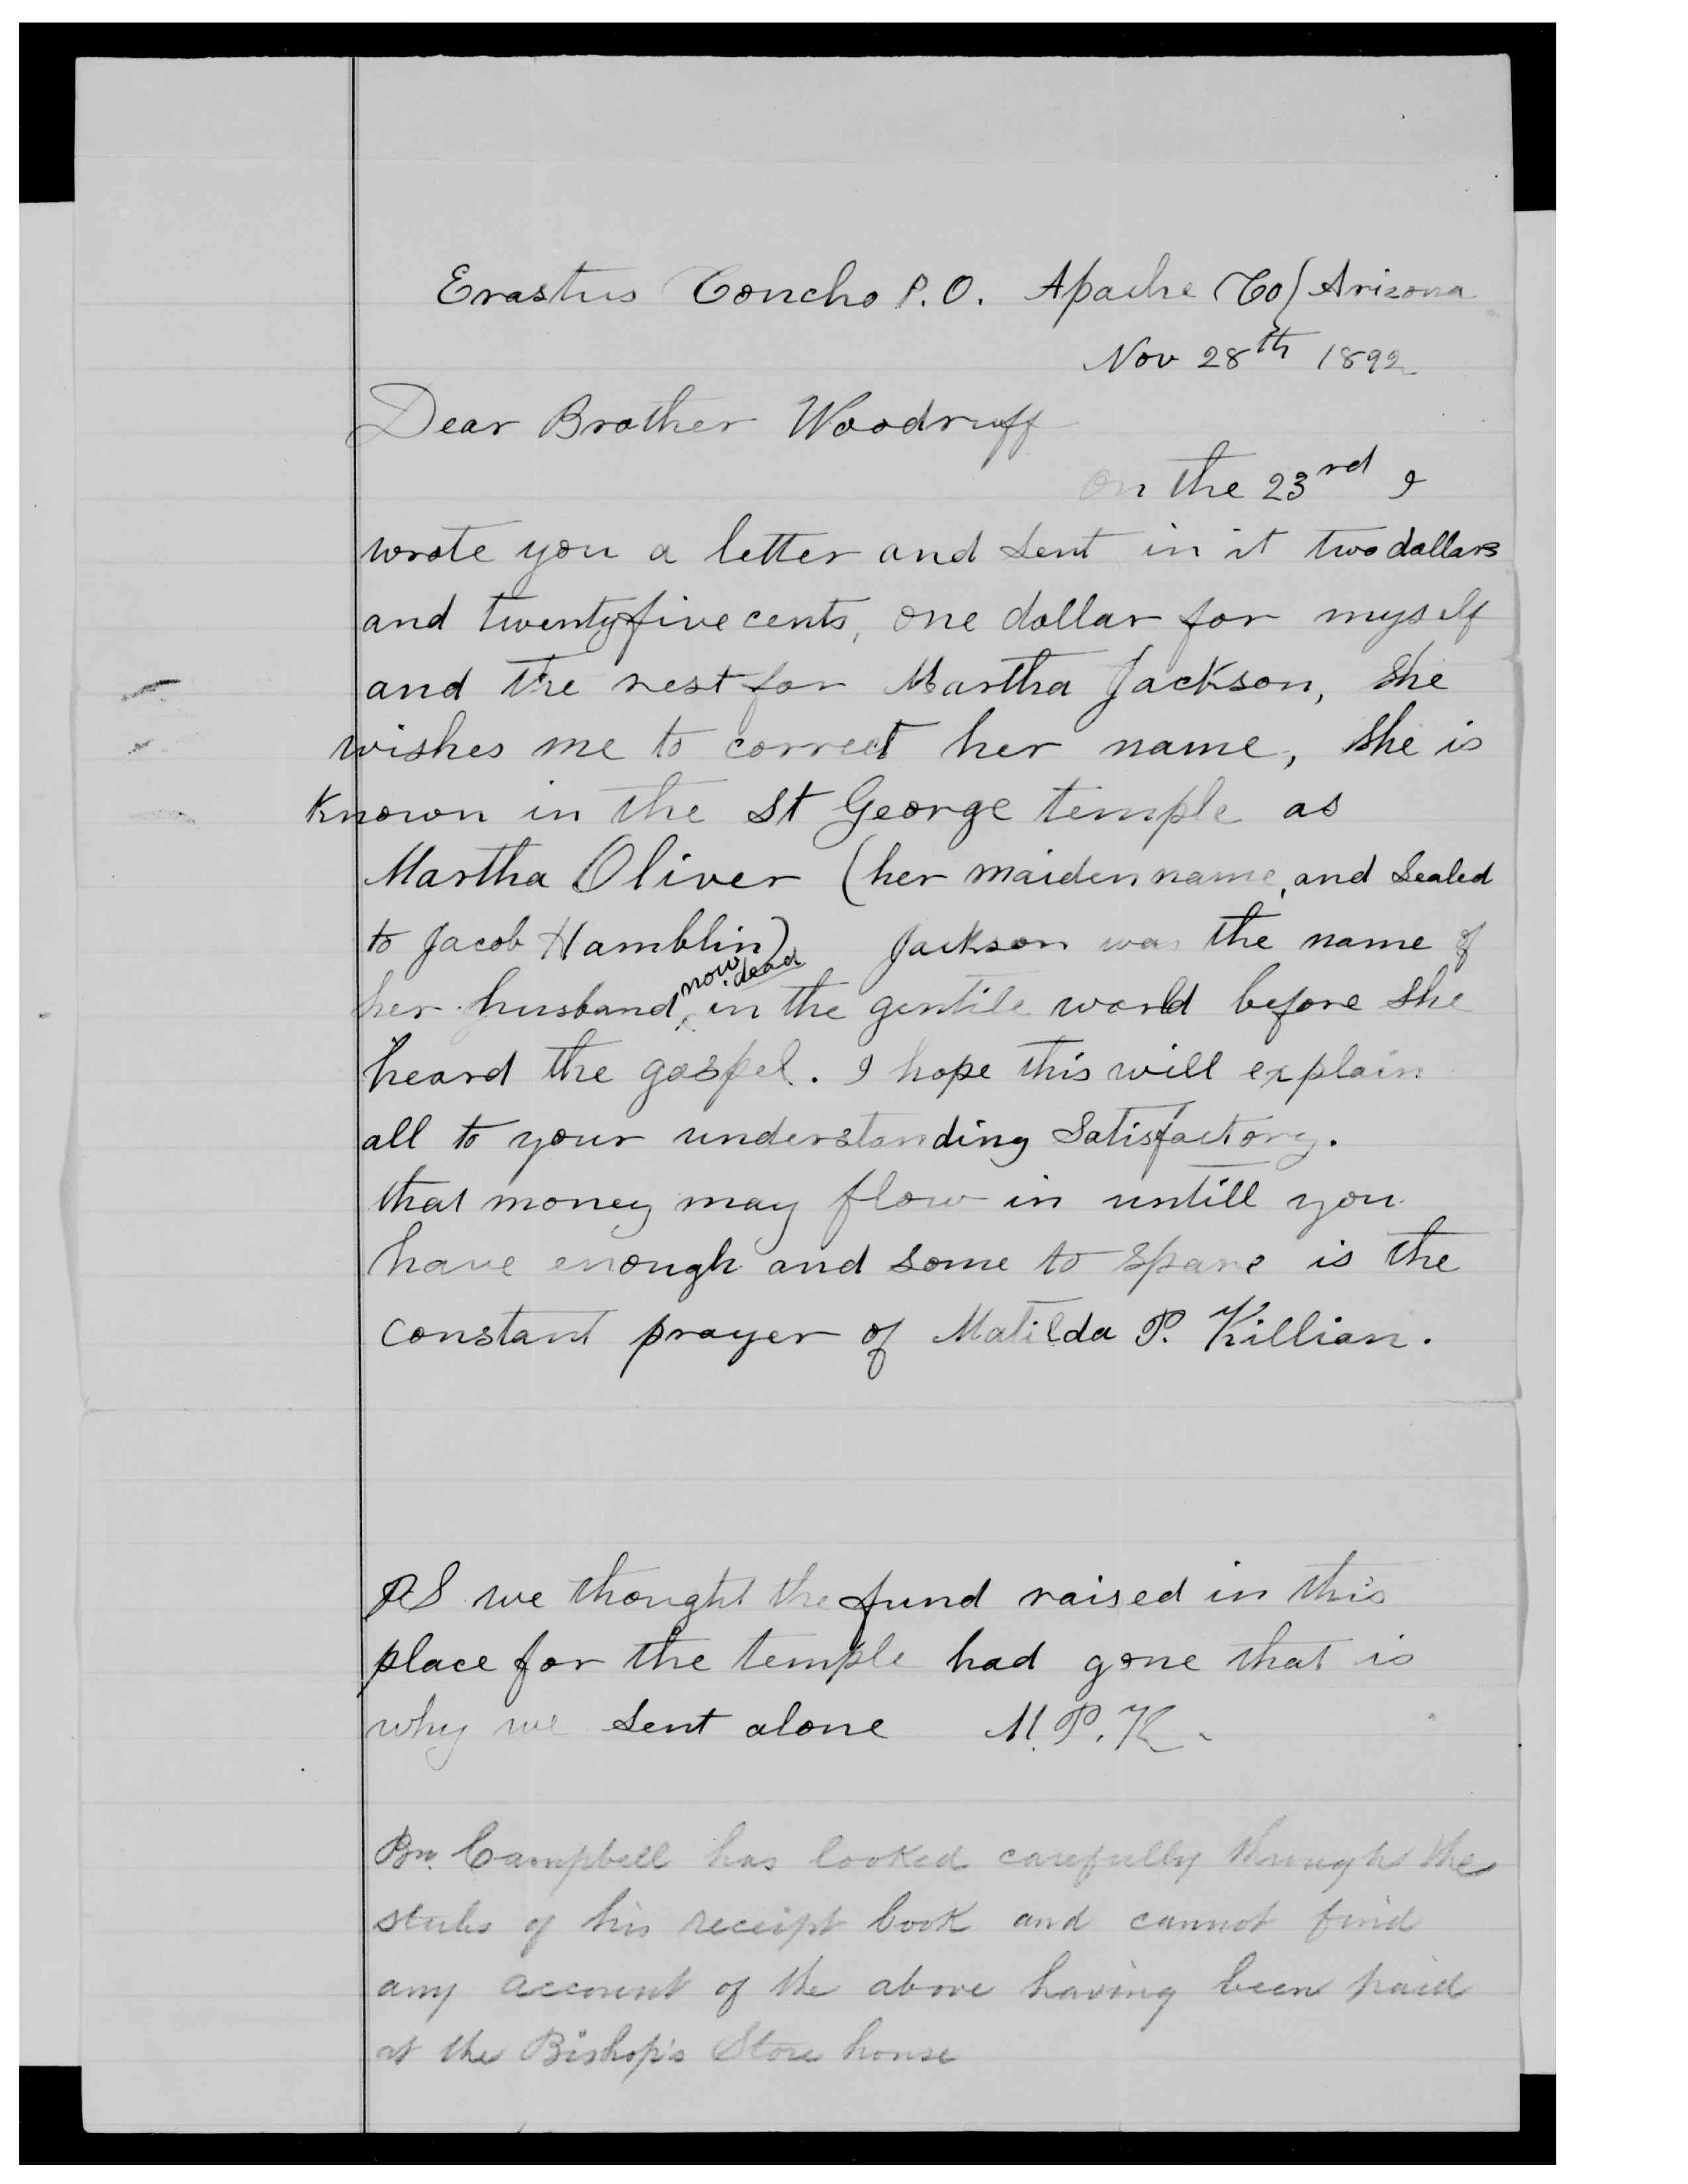 Erastus Concho P.O. Apache Co/ Arizona
Nov 28th 1892
Dear Brother Woodruff
on the 23rd I
wrote you a letter and sent in it two dollars
and twentyfive cents, one dollar for myself
and the rest for Martha Jackson, she
wishes me to correct her name, she is
known in the St George temple as
Martha Oliver (her maiden name, and sealed
to Jacob Hamblin) Jackson was the name of
now dead
her husband, in the gentile world before she
heard the gospel. I hope this will explain
all to your understanding satisfactory.
that money may flow in untill you
have enough and some to spare is the
constant prayer of Matilda P. Killian.
PS we thought the fund raised in this
place for the temple had gone that is
why we sent alone M. P. K.
Bro. Campbell has looked carefully through the
stubs of his receipt book and cannot find
any account of the above having been paid
at the Bishop's Store house